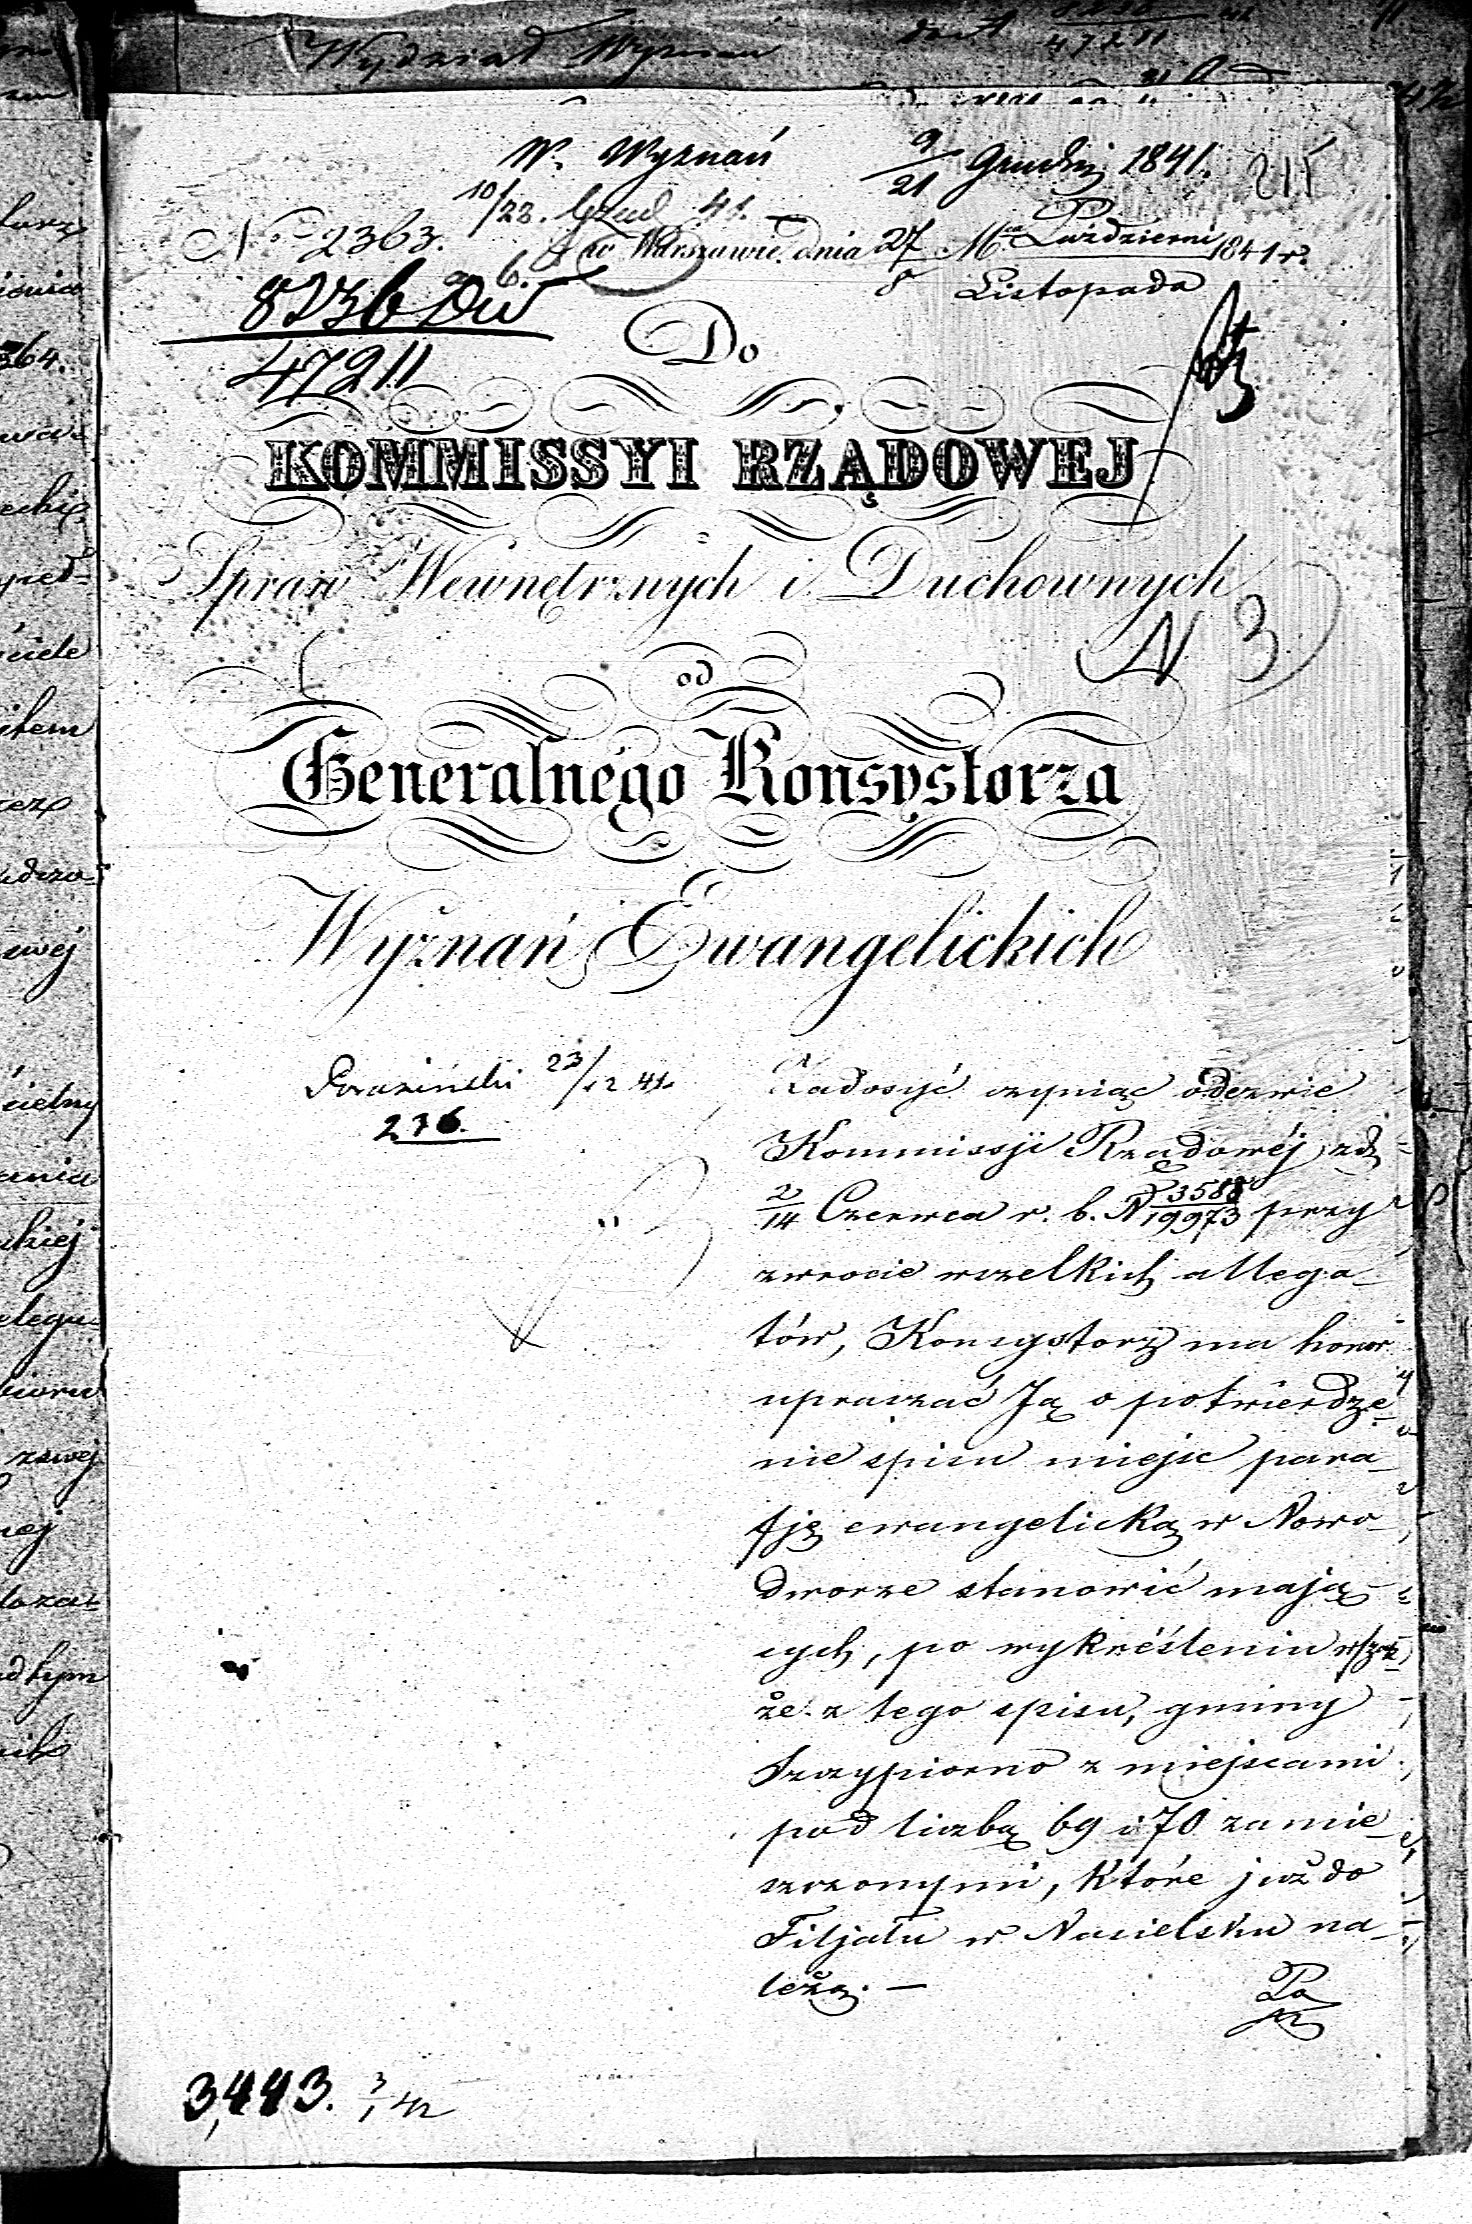 W. Wyznań
9/21 Grudnia 1841. 215
10/22. Grud 41.
No 2363.
w Warszawie dnia 27/8 Mca Październi/Listopada 1841 r.
8236 Dw
47211
Do
KOMMISSYI RZĄDOWEJ
Spraw Wewnętrznych i Duchownych
N 3
od
Generalnego Konsystorza
Wyznań Ewangelickich
23/12 41.
236.
Zadosyć czyniąc odezwie
Kommissji Rządowéj z d.
2/14 Czerwca r. b. N 3588/19973 przy
zwrocie wszelkich allega-
tów, Konsystorz ma honor
upraszać Ją o potwierdze-
nie spisu miejsc para-
fję ewangelicką w Nowo-
dworze stanowić mają-
cych, po wykréśleniu wszak-
że z tego spisu, gminy
Szczypiorno z miejscami
pod liczbą 69 i 70 zamie-
szczonymi, które już do
Filjału w Nasielsku na-
leżą. —
3,443. 3/1 42